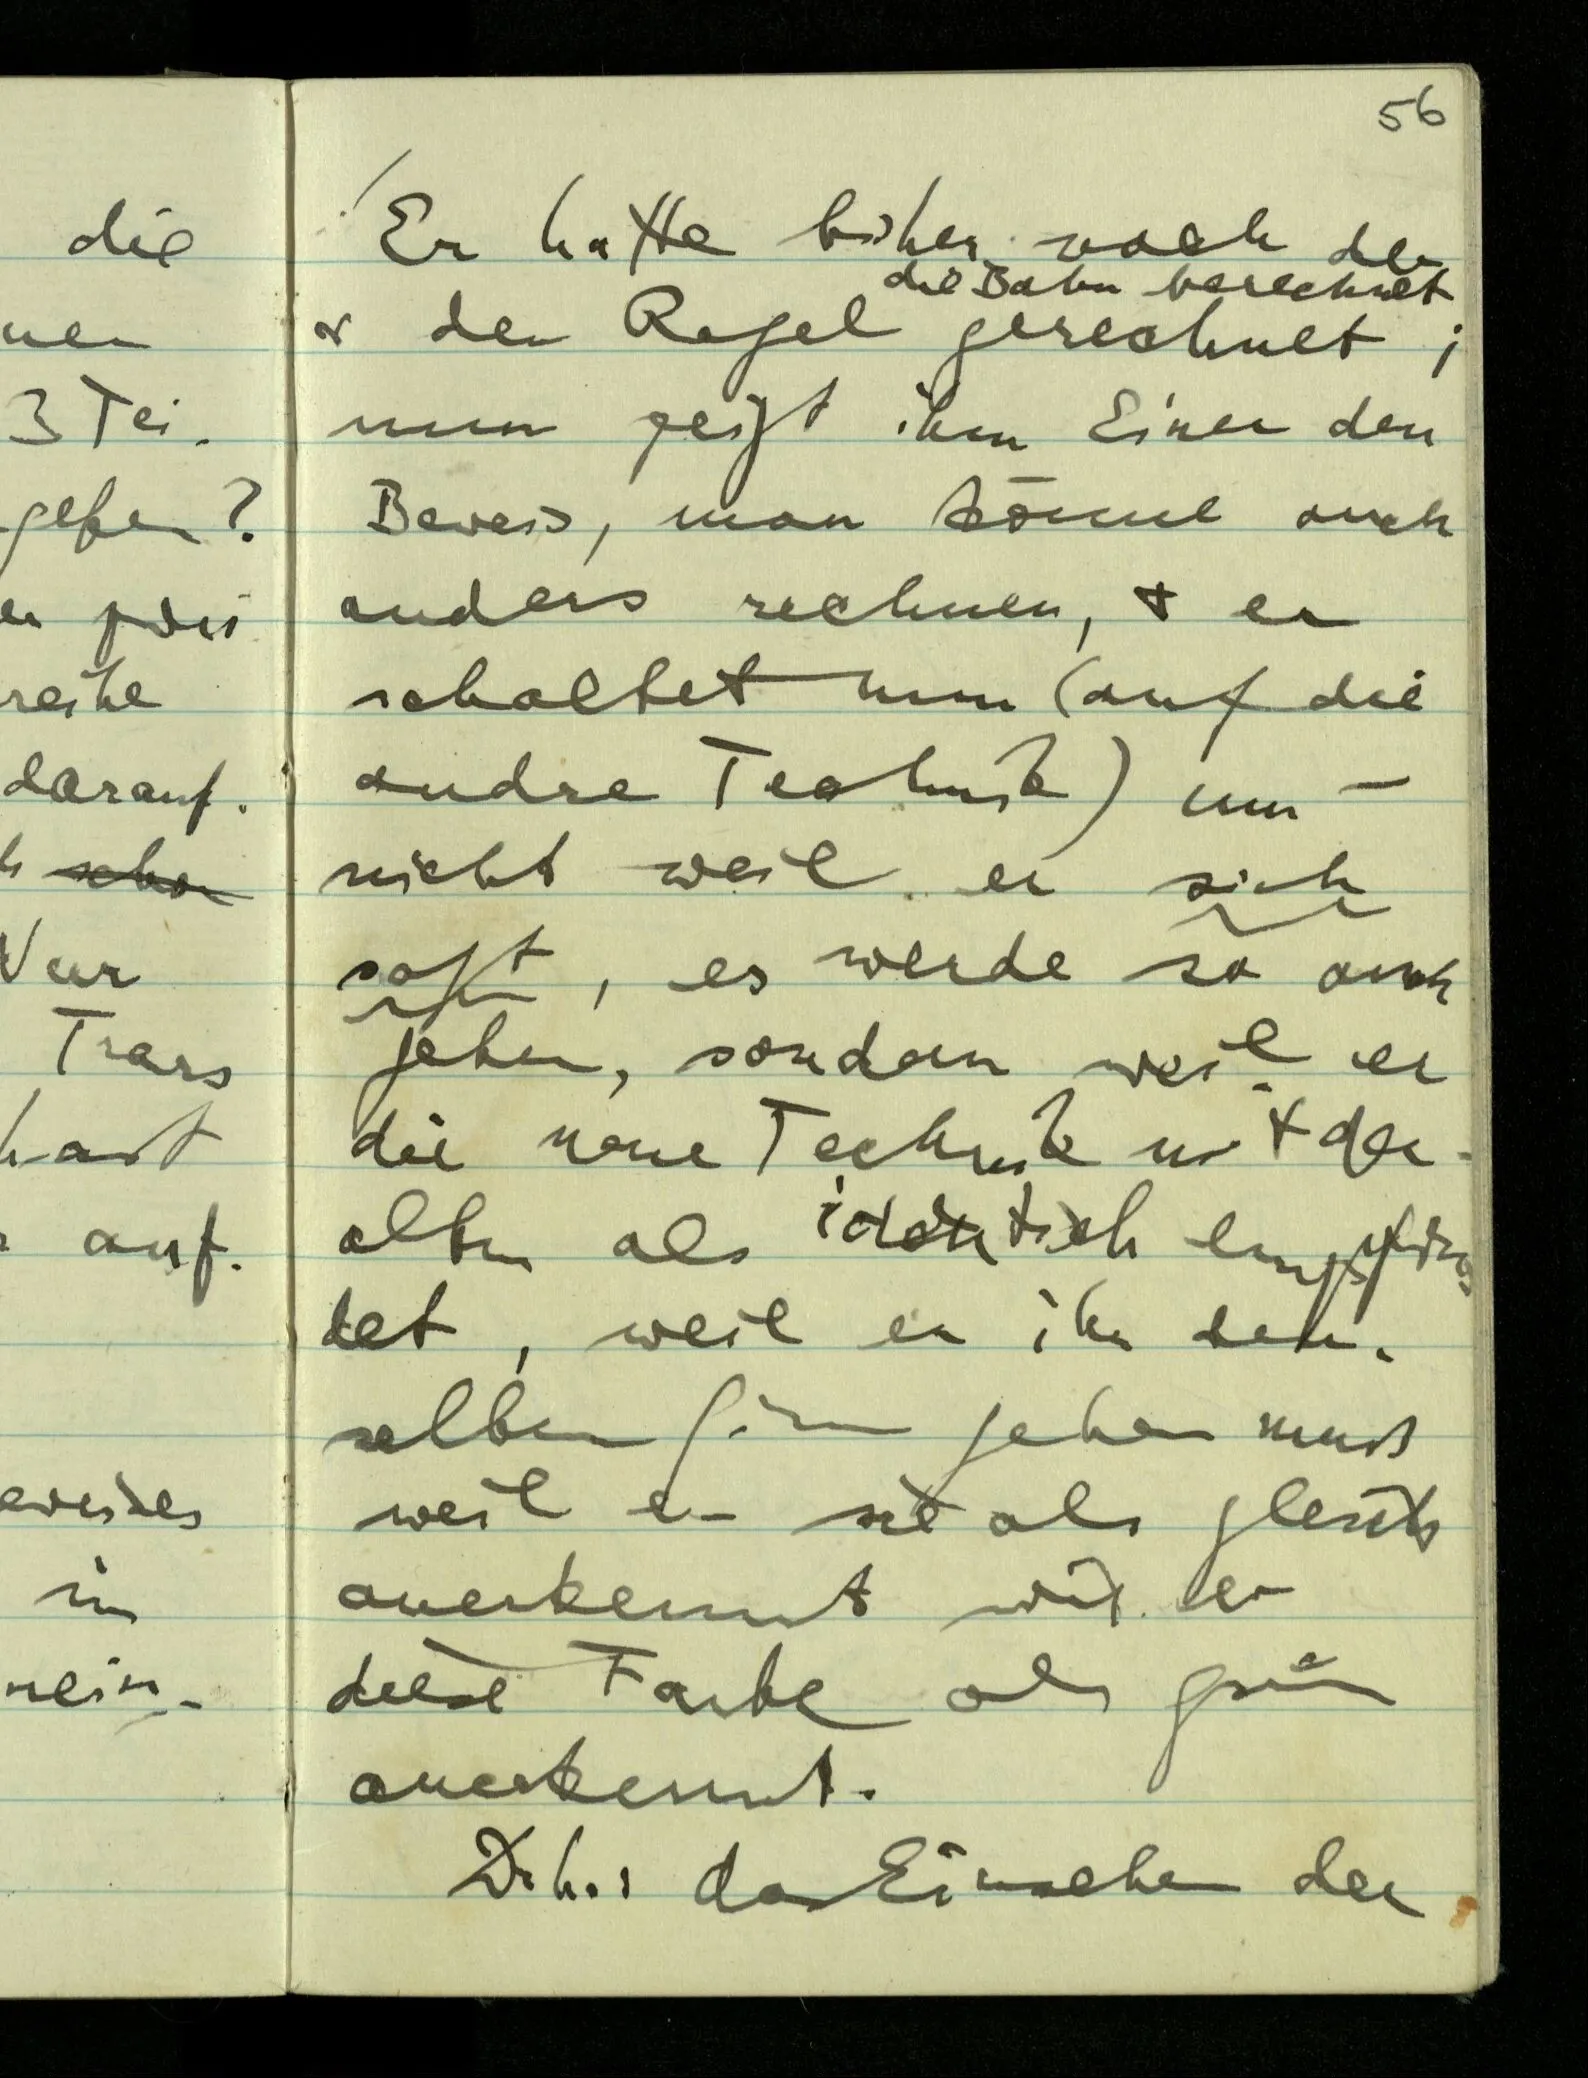 56
die
nen
3 Tei-
geben?
reihe
darauf.
schon
Nur
Trans
hart
auf.
eweises
in
nein-
/ Er hatte bisher nach der
die Bahn berechnet
& der Regel gerechnet;
nun zeigt ihm Einer den
Beweis, man könne auch
anders rechnen, & er
schaltet nun (auf die
andre Technik) um –
nicht weil er sich
sagt, es werde so auch
gehen, sondern weil er
die neue Technik mit der
alten als identisch empfin-
det, weil er ihr den-
selben Sinn geben muß
weil er sie als gleich
anerkennt wie er
diese Farbe als grün
anerkennt.
D.h.: das Einsehen der